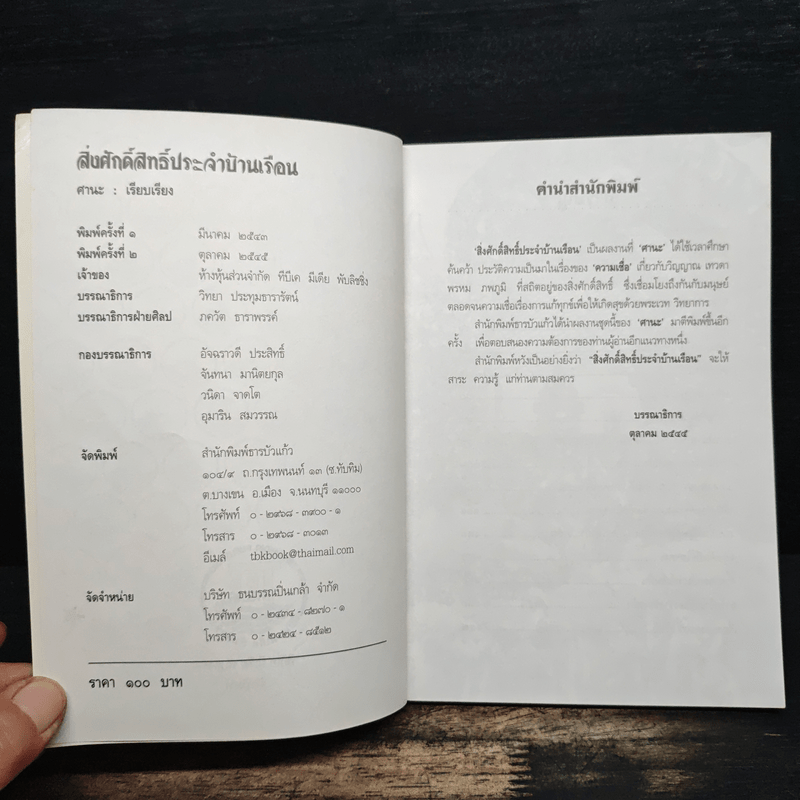 สิ่งศักดิ์สิทธิ์ประจำบ้านเรือน
ศานะ : เรียบเรียง
พิมพ์ครั้งที่ ๑ มีนาคม ๒๕๔๓
พิมพ์ครั้งที่ ๒ ตุลาคม ๒๕๔๕
เจ้าของ ห้างหุ้นส่วนจำกัด ทีบีเค มีเดีย พับลิชชิ่ง
บรรณาธิการ วิทยา ประทุมธารารัตน์
บรรณาธิการฝ่ายศิลป ภควัต ธาราพรรค์
กองบรรณาธิการ อัจฉราวดี ประสิทธิ์
จันทนา มานิตยกุล
วนิดา จาดโต
อุมาริน สมวรรณ
จัดพิมพ์ สำนักพิมพ์ธารบัวแก้ว
๑๐๔/๙ ถ.กรุงเทพนนท์ ๑๓ (ซ.ทับทิม)
ต.บางเขน อ.เมือง จ.นนทบุรี ๑๑๐๐๐
โทรศัพท์ ๐ - ๒๙๖๘ - ๓๙๐๐ - ๑
โทรสาร ๐ - ๒๙๖๘ - ๓๐๑๓
อีเมล์ tbkbook@thaimail.com
จัดจำหน่าย บริษัท ธนบรรณปิ่นเกล้า จำกัด
โทรศัพท์ ๐ - ๒๔๓๔ - ๘๒๗๐ - ๑
โทรสาร ๐ - ๒๔๒๔ - ๘๕๑๒
ราคา ๑๐๐ บาท
คำนำสำนักพิมพ์
'สิ่งศักดิ์สิทธิ์ประจำบ้านเรือน' เป็นผลงานที่ 'ศานะ' ได้ใช้เวลาศึกษา
ค้นคว้า ประวัติความเป็นมาในเรื่องของ 'ความเชื่อ' เกี่ยวกับวิญญาณ เทวดา
พรหม ภพภูมิ ที่สถิตอยู่ของสิ่งศักดิ์สิทธิ์ ซึ่งเชื่อมโยงถึงกันกับมนุษย์
ตลอดจนความเชื่อเรื่องการแก้ทุกข์เพื่อให้เกิดสุขด้วยพระเวท วิทยาการ
สำนักพิมพ์ธารบัวแก้วได้นำผลงานชุดนี้ของ 'ศานะ' มาตีพิมพ์ขึ้นอีก
ครั้ง เพื่อตอบสนองความต้องการของท่านผู้อ่านอีกแนวทางหนึ่ง
สำนักพิมพ์หวังเป็นอย่างยิ่งว่า "สิ่งศักดิ์สิทธิ์ประจำบ้านเรือน" จะให้
สาระ ความรู้ แก่ท่านตามสมควร
บรรณาธิการ
ตุลาคม ๒๕๔๕